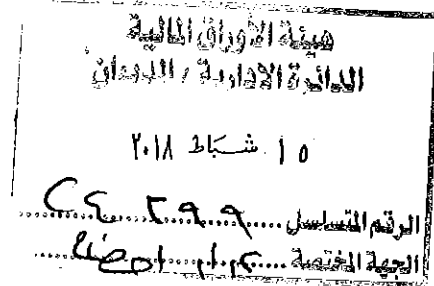 هيئة الأوراق المالية
الدائرة الإدارية / الديوان
١٥ شباط ٢٠١٨
الرقم المتسلسل
الجهة المختصة